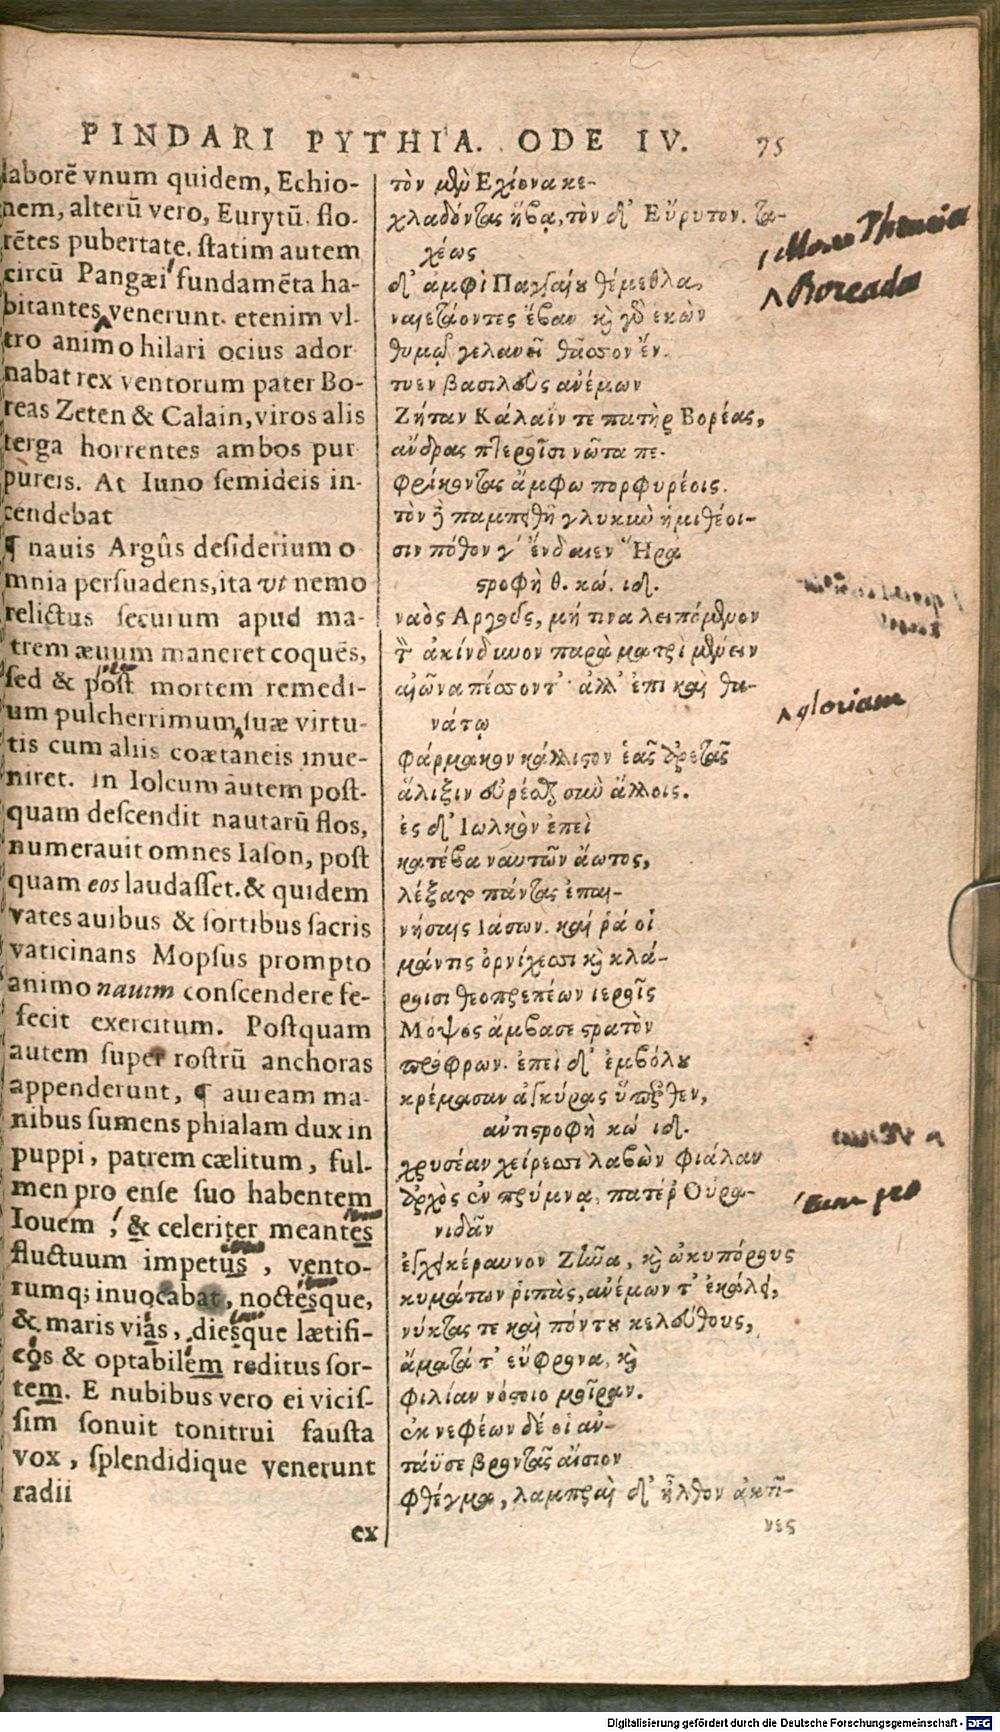 PINDARI PYTHIA. ODE IV. 75
laborē vnum quidem, Echio-
nem, alterū vero, Eurytū. flo-
rētes pubertate. statim autem
circū Pangæi fundamēta ha-
bitantes venerunt. etenim vl-
tro animo hilari ocius ador
nabat rex ventorum pater Bo-
reas Zeten & Calain, viros alis
terga horrentes ambos pur
pureis. At Iuno semideis in-
cendebat
¶ nauis Argûs desiderium o
mnia persuadens, ita vt nemo
relictus securum apud ma-
trem æuum maneret coquēs,
sed & post mortem remedi-
um pulcherrimum suæ virtu-
tis cum aliis coætaneis inue-
niret. in Iolcum autem post-
quam descendit nautarū flos,
numerauit omnes Iason, post
quam eos laudasset. & quidem
vates auibus & sortibus sacris
vaticinans Mopsus prompto
animo nauim conscendere fe-
fecit exercitum. Postquam
autem super rostrū anchoras
appenderunt, ¶ auream ma-
nibus sumens phialam dux in
puppi, patrem cælitum, ful-
men pro ense suo habentem
Iouem, & celeriter meantes
fluctuum impetus, vento-
rumq; inuocabat, noctesque,
& maris vias, diesque lætifi-
cos & optabilem reditus sor-
tem. E nubibus vero ei vicis-
sim sonuit tonitrui fausta
vox, splendidique venerunt
radii
ex
τὸν μὲν Εχίονα κε-
χλαδόντας ἥβᾳ, τὸν δ' Εὔρυτον. τα-
χέως
δ' ἀμφὶ Παγγαίου θέμεθλα,
ναιετάοντες ἔβαν καὶ γὰρ ἑκὼν
θυμῷ γελανεῖ θᾶσσον ἔν.
τυεν βασιλεὺς ἀνέμων
Ζήταν Κάλαΐν τε πατὴρ Βορέας,
ἄνδρας πτεροῖσι νῶτα πε-
φρίκοντας ἄμφω πορφυρέοις.
τὸν δὲ παμπειθῆ γλυκὺν ἡμιθέοι-
σιν πόθον γ' ἔνδαιεν Ἥρα
στροφὴ θ. κώ. ιδ.
ναὸς Αργοῦς, μή τινα λειπόμενον
τὰν ἀκίνδυνον παρὰ ματρὶ μένειν
αἰῶνα πέσσοντ' ἀλλ' ἐπι καὶ θα-
νάτῳ
φάρμακον κάλλιστον ἑᾶς ἀρετᾶς
ἅλιξιν εὑρέσθαι σὺν ἄλλοις.
ἐς δ' Ιωλκὸν ἐπεὶ
κατέβα ναυτῶν ἄωτος,
λέξατο πάντας ἐπαι-
νήσαις Ιάσων. καί ῥά οἱ
μάντις ὀρνίχεσσι καὶ κλά-
ροισι θεοπρεπέων ἱεροῖς
Μόψος ἄμβασε στρατὸν
πρόφρων. ἐπεὶ δ' ἐμβόλου
κρέμασαν ἀγκύρας ὕπερθεν,
ἀντιστροφὴ κώ ιδ.
χρυσέαν χείρεσσι λαβὼν φιάλαν
ἀρχὸς ἐν πρύμνᾳ, πατέρ' Οὐρα-
νιδᾶν
ἐγχεικέραυνον Ζῆνα, καὶ ὠκυπόρους
κυμάτων ῥιπὰς, ἀνέμων τ' ἐκάλει,
νύκτας τε καὶ πόντου κελεύθους,
ἄματά τ' εὔφρονα, καὶ
φιλίαν νόστοιο μοῖραν.
ἐκ νεφέων δέ οἱ ἀν-
τάϋσε βροντᾶς αἴσιον
φθέγμα, λαμπραὶ δ' ἦλθον ἀκτῖ-
νες
Boreada
gloriam
Digitalisierung gefördert durch die Deutsche Forschungsgemeinschaft - DFG